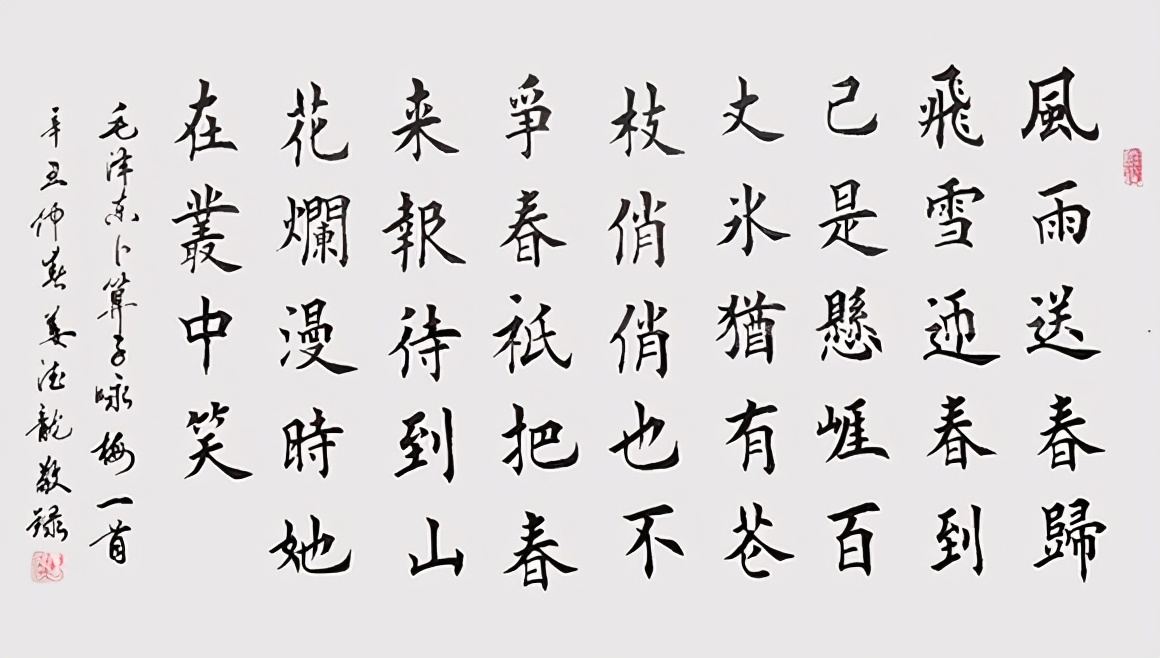 風雨送春歸
飛雪迎春到
已是懸崖百
丈冰猶有花
枝俏俏也不
爭春祇把春
来報待到山
花爛漫時她
在叢中笑
毛泽东卜算子咏梅一首
辛丑仲春姜德龍敬録